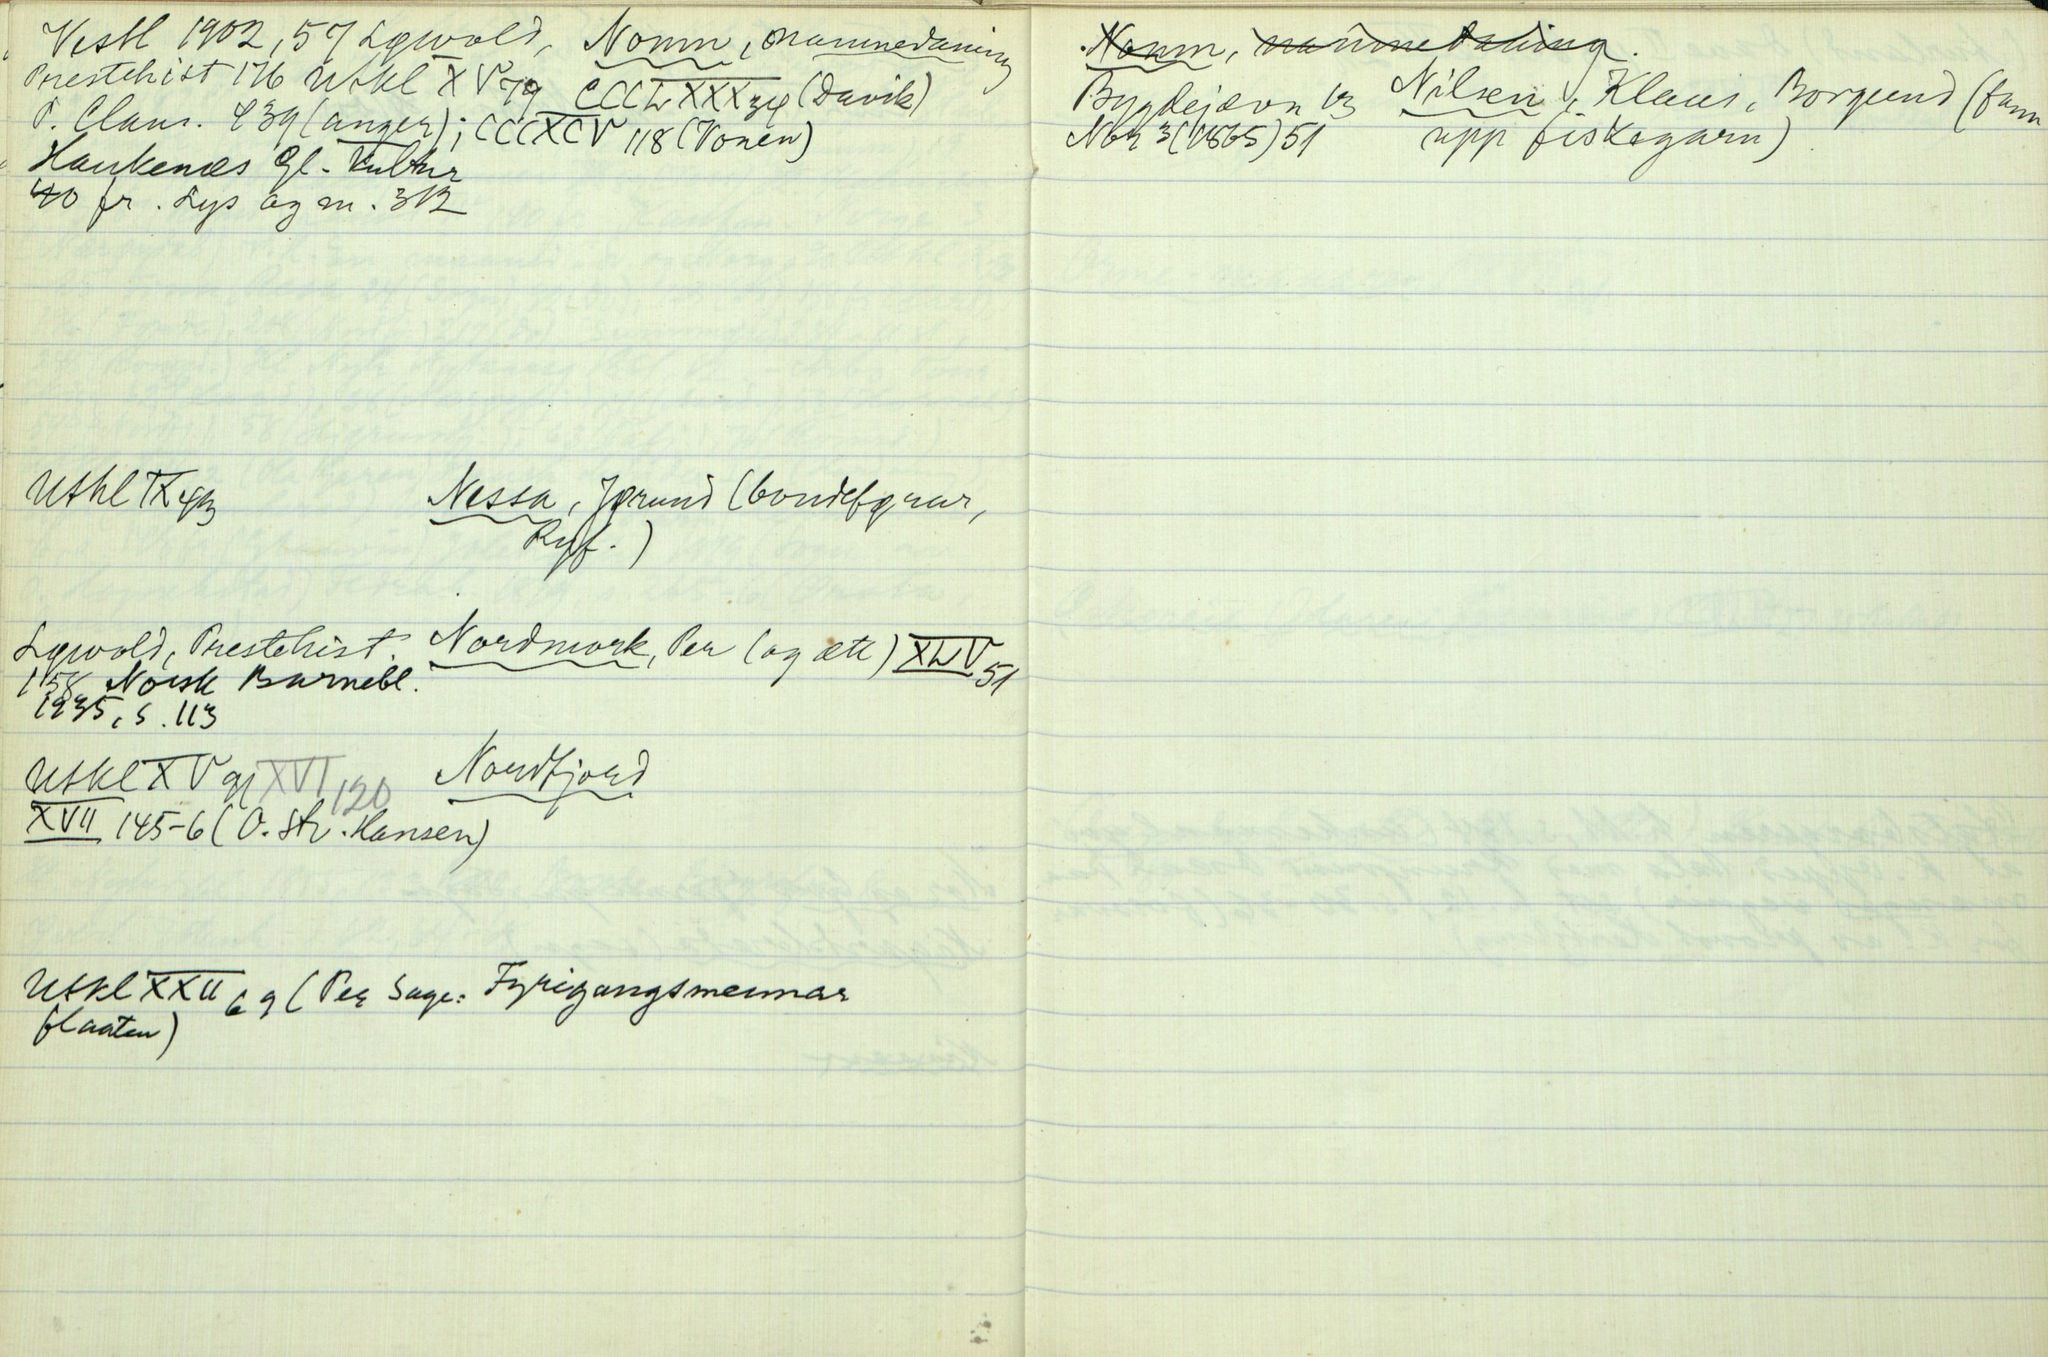 Vestl 1902, 57 Løvold, Namn, namnedaning
Prestehist 176 Utkl XV 79 CCCLXXX 34 (Davik)
P. Claus. 439 (anger); CCCXCV 118 (Vonen)
Haukenæs Gl. Kultur
40 fr. Lys og m. 312
Utkl IX 43 Nessa, Jørund (bondeførar,
Ryf.)
Løvold, Prestehist. Nordmork, Per (og ætt) XLV 51
158 Norsk Barnebl.
1935, s. 113
Utkl XV 91 XVI 120 Nordfjord
XVII 145-6 (O. Str. Hansen)
Utkl XXII 69 (Per Sage: Fyrigangsmennar
flaaten)
Namn, namnedaning.
Bygdejavn 13 Nilsen, Klaus, Borgund (fann
Nbr 3 (1865) 51 upp fiskegarn)